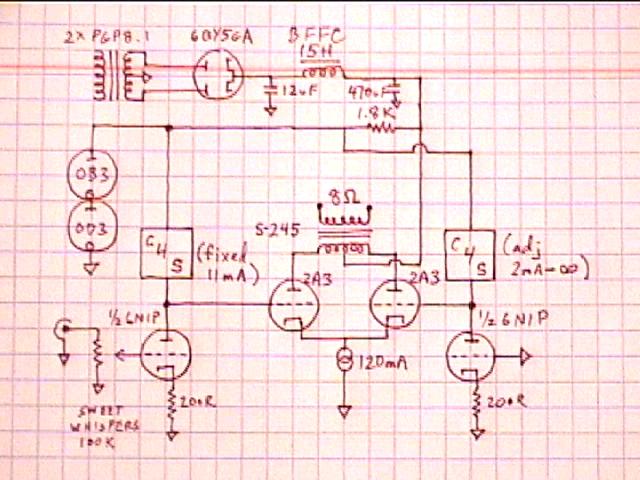 2x PGP8.1
6BY5GA
BFFC
15H
12uF
470uF
1.8K
0B3
0D3
8Ω
S-245
C4S
(fixed
11mA)
2A3
2A3
C4S
(adj
2mA-∞)
1/2 6N1P
1/2 6N1P
120mA
200R
200R
SWEET
WHISPERS
100K